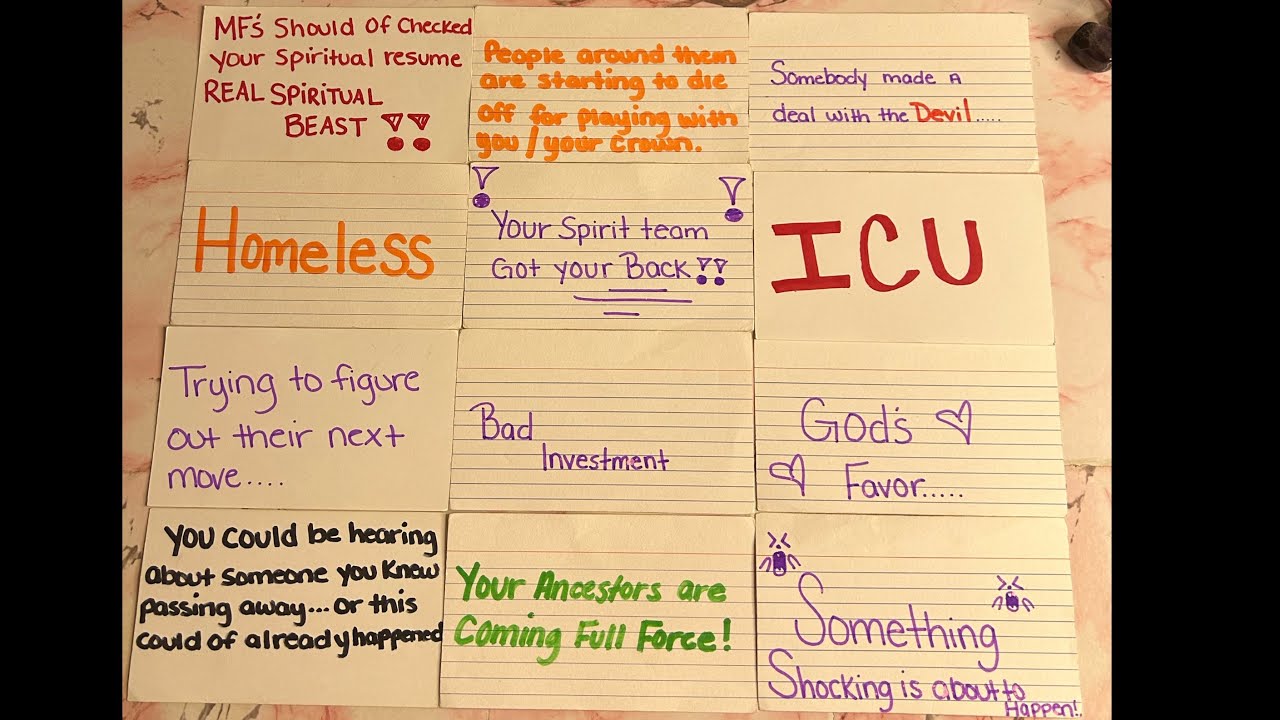 MF's Should Of Checked
your Spiritual resume
REAL SPIRITUAL
BEAST !!
People around them
are starting to die
off for playing with
you / your crown.
Somebody made A
deal with the Devil.....
Homeless
Your Spirit team
Got your Back!!
ICU
Trying to figure
out their next
move....
Bad
Investment
God's
Favor.....
You could be hearing
about someone you knew
passing away... or this
could of already happened
Your Ancestors are
Coming Full Force!
Something
Shocking is about to
Happen!